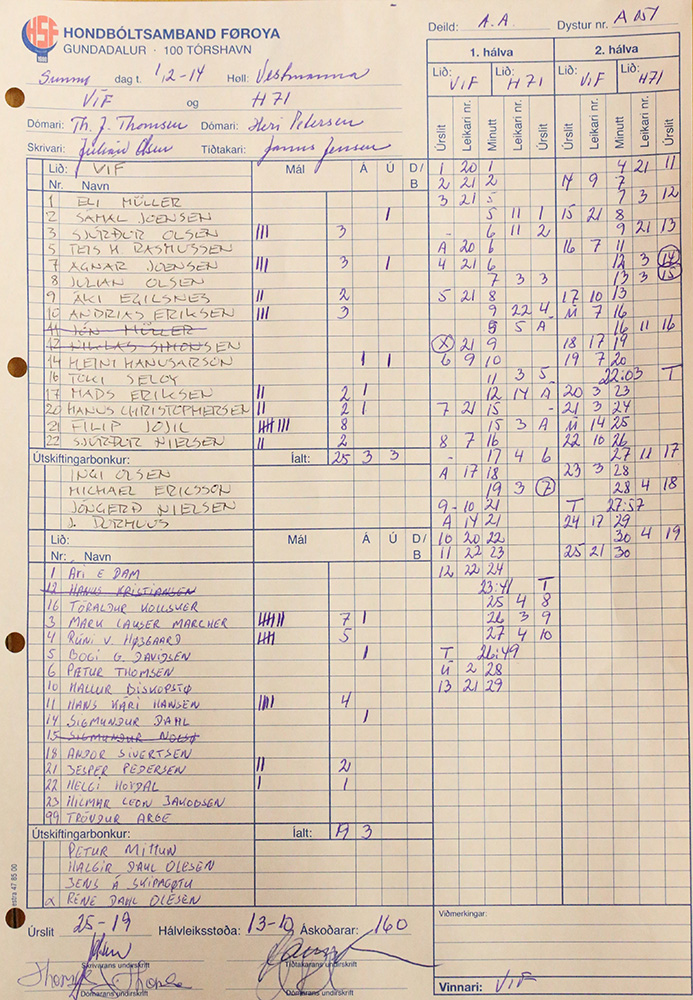 HSF
HONDBÓLTSAMBAND FØROYA
GUNDADALUR · 100 TÓRSHAVN
Deild: A.A. Dystur nr.
dag t. 12-14 Høll: Vestmanna
VÍF og H71
Dómari: Th. J. Thomsen Dómari: Heri Petersen
Skrivari: Julian Olsen Tíðtakari: Janus Jensen
1. hálva 2. hálva
Lið: VÍF Lið: H71 Lið: VÍF Lið: H71
Úrslit Leikari nr. Minutt Leikari nr. Úrslit Úrslit Leikari nr. Minutt Leikari nr. Úrslit
Lið: VÍF Mál Á Ú D/B
Nr. Navn
1 ELI MÜLLER
2 SAMAL JOENSEN I
3 SJÚRÐUR OLSEN III 3
5 TEIS H. RASMUSSEN
7 AGNAR JOENSEN III 3 1
8 JULIAN OLSEN
9 ÁKI EGILSNES II 2
10 ANDRIAS ERIKSEN III 3
11 JÓN MÜLLER
12 NIKLAS SIMONSEN
14 HEINI HANUSARSON 1 1
16 TÓKI SELOY
17 MADS ERIKSEN II 2 1
20 HANUS CHRISTOPHERSEN II 2 1
21 FILIP JOJIC IIII III 8
22 SJÚRÐUR NIELSEN II 2
Útskiftingarbonkur: Íalt: 25 3 3
INGI OLSEN
MICHAEL ERICSSON
JÓNGERÐ NIELSEN
Lið: Mál Á Ú D/B
Nr: Navn
1 ÁRI E DAM
12 HANUS KRISTIANSEN
16 TÓRALDUR KOLLSKER
3 MARK LAUSER MARCHER IIII II 7 1
4 RÚNI V. HØJGAARD IIII 5
5 BOGI G. DAVIDSEN 1
6 PÆTUR THOMSEN
10 HALLUR BISKOPSTØ
11 HANS KÁRI HANSEN IIII 4
14 SIGMUNDUR DAHL 1
15 SIGMUNDUR NOLSØ
18 ANDOR SIVERTSEN
21 JESPER PEDERSEN II 2
22 HELGI HOYDAL I 1
23 HILMAR LEON JAKOBSEN
99 TRÓNDUR ARGE
Útskiftingarbonkur: Íalt: 19 3
PETUR MITTUN
HALGIR DAHL OLESEN
JENS Á SKIPAGØTU
RENE DAHL OLESEN
1 20 1
2 21 2
3 21 5
5 11 1
- 6 11 2
A 20 6
4 21 6
7 3 3
5 21 8
9 22 4
9 5 A
X 21 9
6 9 10
11 3 5
12 14 A
7 21 15
15 3 A
8 7 16
- 17 4 6
A 17 18
19 3 7
9 - 10 21
A 14 21
10 20 22
11 22 23
12 22 24
23:41 T
25 4 8
26 3 9
27 4 10
T 26:49
Ú 2 28
13 21 29
4 21 11
14 9 7
7 3 12
15 21 8
9 21 13
16 7 11
12 3 14
13 3 15
17 10 13
Ú 7 16
16 11 16
18 17 19
19 7 20
22:03 T
20 3 23
- 21 3 24
Ú 14 25
22 10 26
27 11 17
23 3 28
28 4 18
T 27:57
24 17 29
30 4 19
25 21 30
Úrslit 25-19 Hálvleiksstøða: 13-10 Áskoðarar: 160
Skrivarans undirskrift Tíðtakarans undirskrift
Dómarans undirskrift Dómarans undirskrift
Viðmerkingar:
Vinnari: VÍF